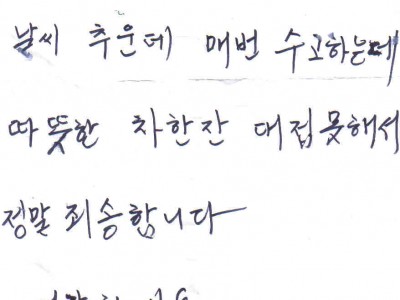 날씨 추운데 매번 수고하는데
따뜻한 차한잔 대접못해서
정말 죄송합니다